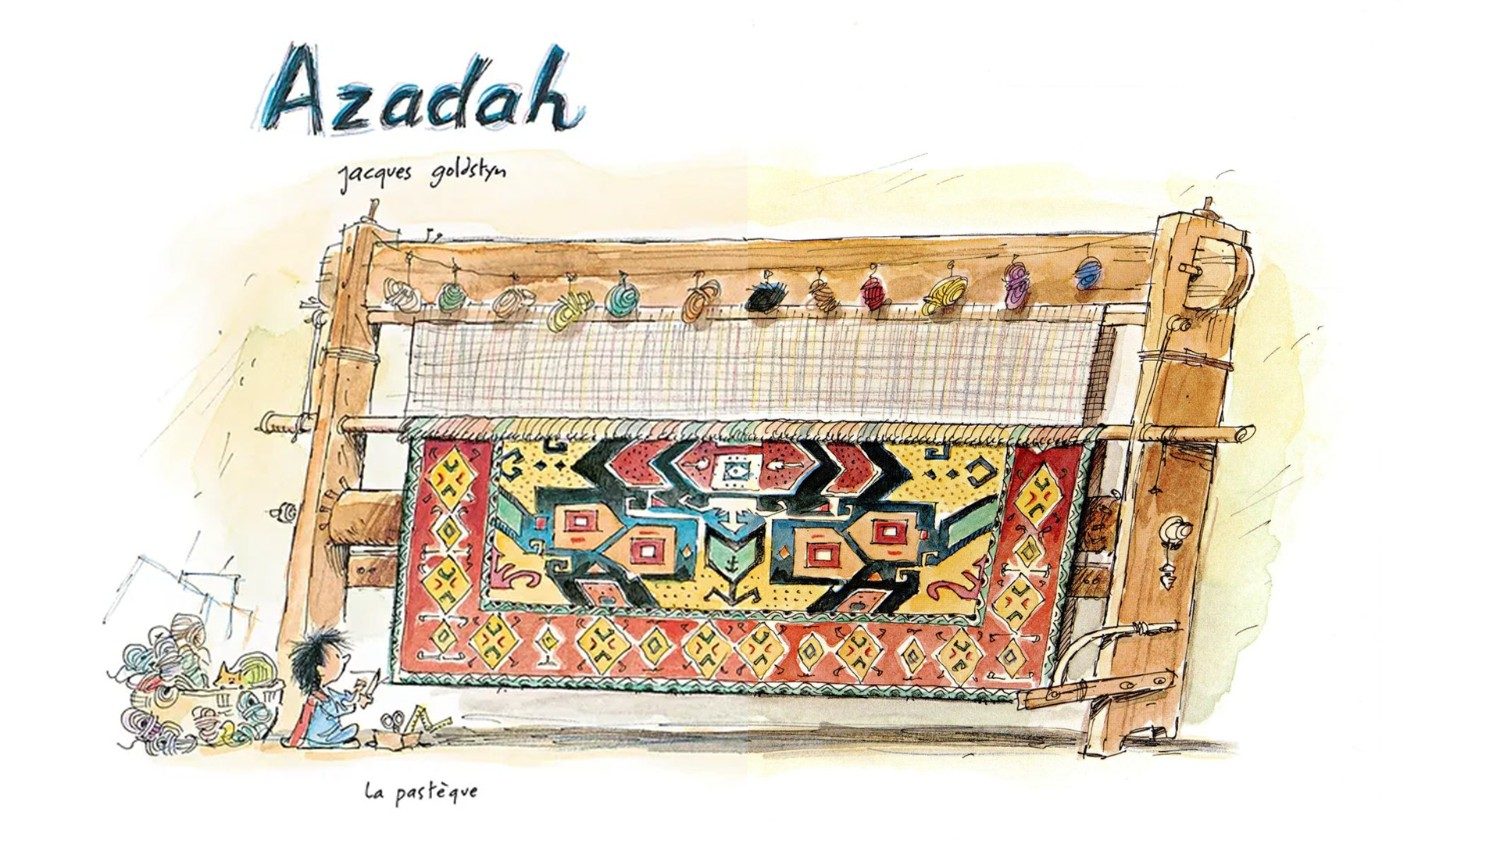 Azadah
jacques goldstyn
la pastèque